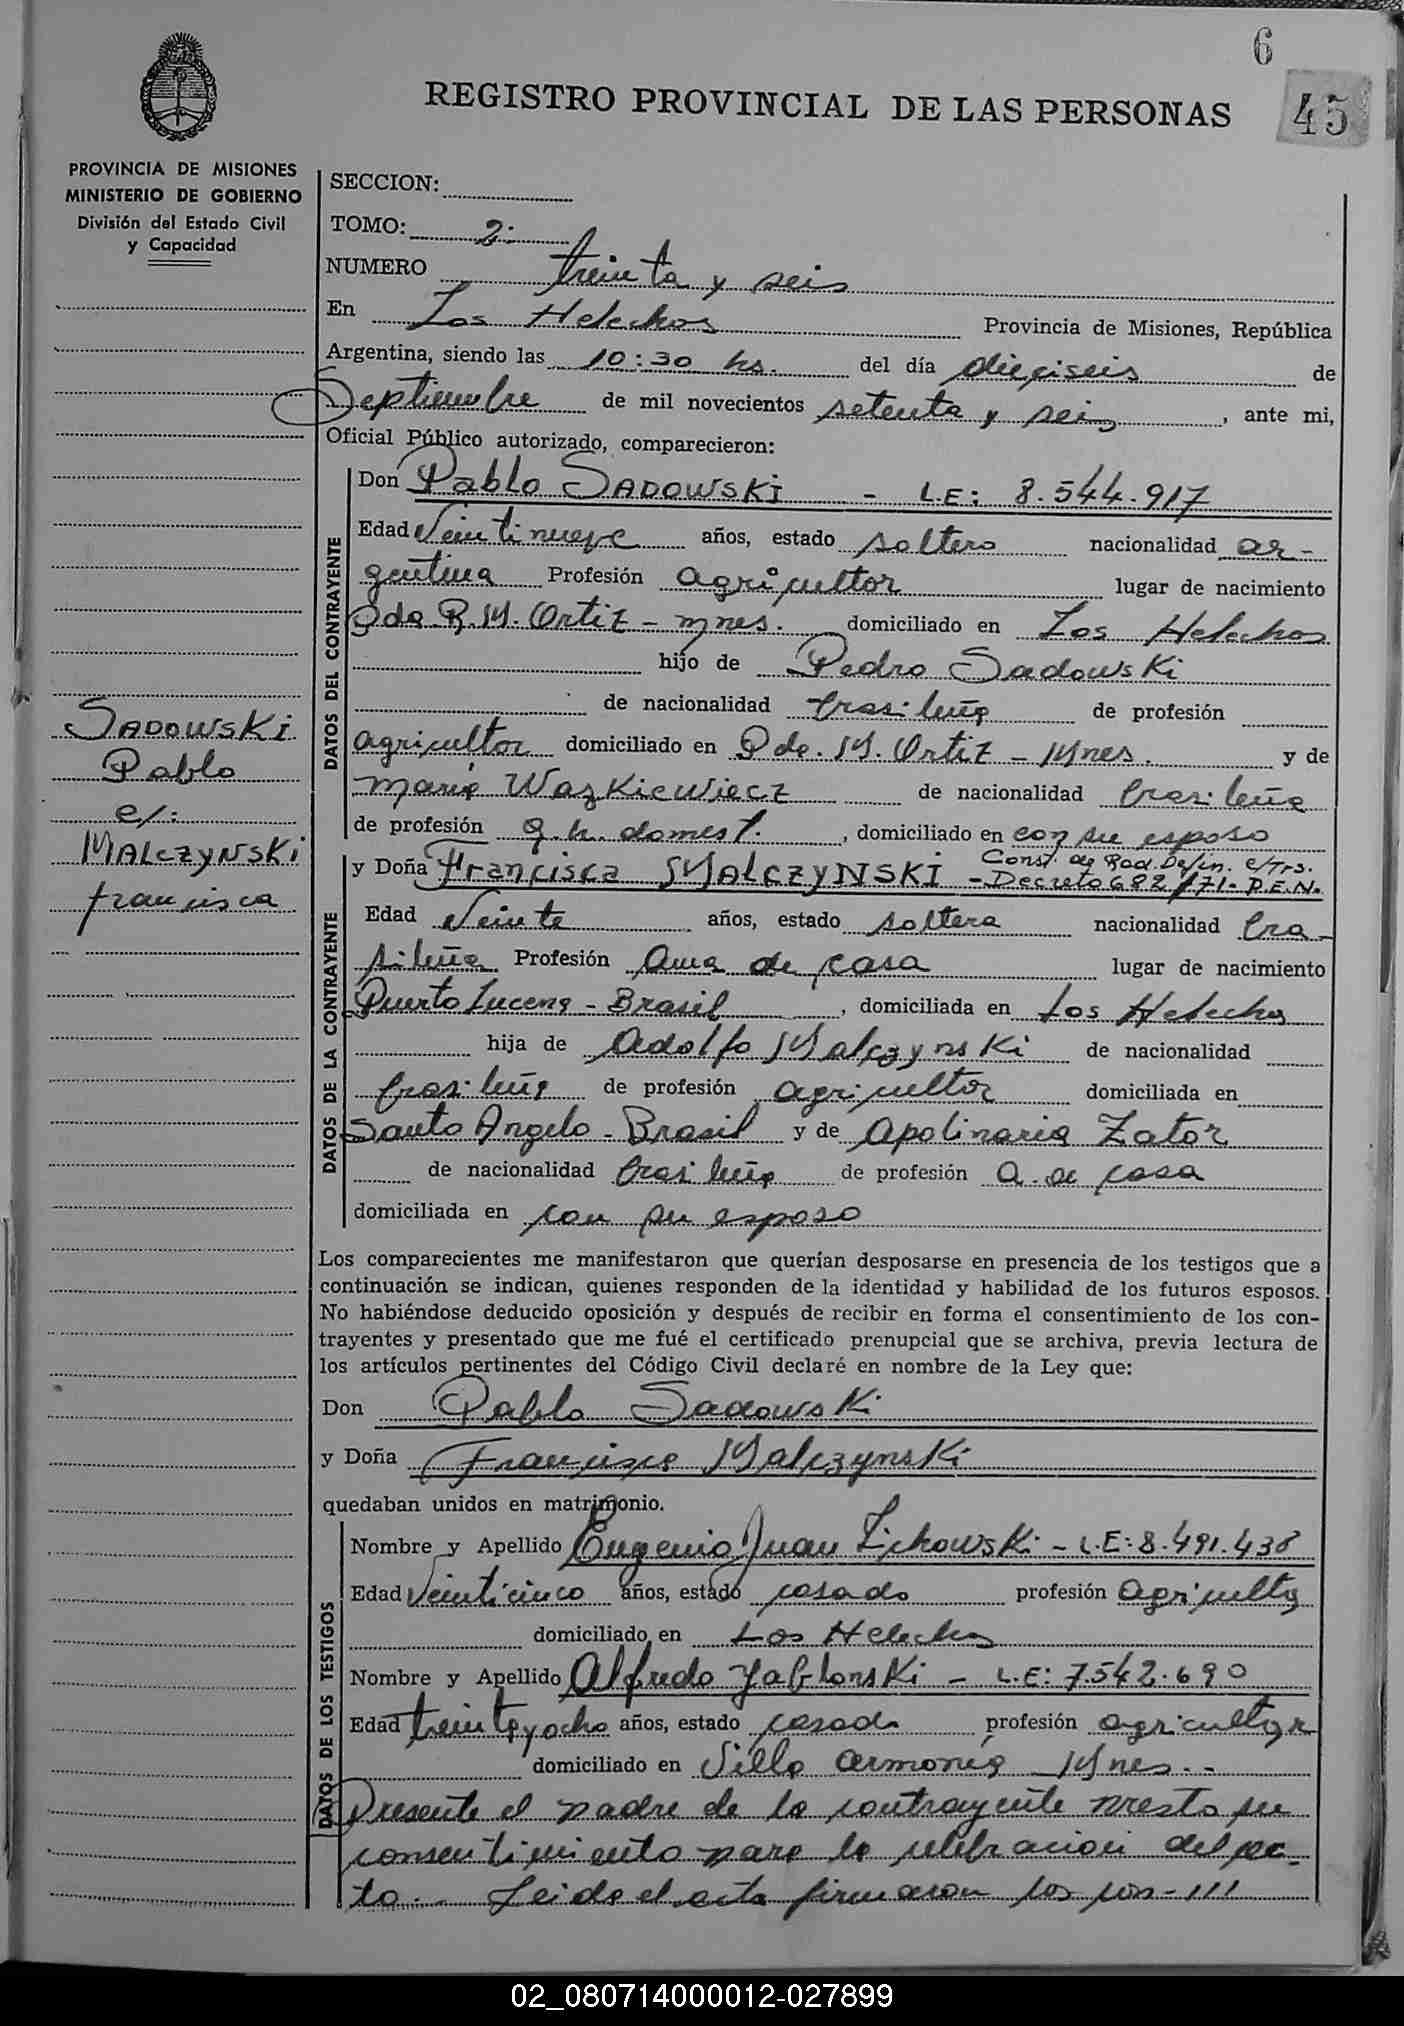 6
REGISTRO PROVINCIAL DE LAS PERSONAS
45
PROVINCIA DE MISIONES
MINISTERIO DE GOBIERNO
División del Estado Civil
y Capacidad
SADOWSKi
Pablo
c/:
MALCZYNSKi
francisca
SECCION:
TOMO: 2:
NUMERO treinta y seis
En Los Helechos Provincia de Misiones, República
Argentina, siendo las 10:30 hs. del día dieciseis de
Septiembre de mil novecientos setenta y seis, ante mi,
Oficial Público autorizado, comparecieron:
DATOS DEL CONTRAYENTE
Don Pablo SADOWSKi - L.E: 8.544.917
Edad Veintinueve años, estado soltero nacionalidad ar-
gentina Profesión agricultor lugar de nacimiento
Pda. R. M. Ortiz - Mnes. domiciliado en Los Helechos
hijo de Pedro Sadowski
de nacionalidad brasileña de profesión
agricultor domiciliado en Pda. M. Ortiz - Mnes. y de
Maria Wazkiewiecz de nacionalidad brasileña
de profesión q.h. domest. , domiciliado en con su esposo
DATOS DE LA CONTRAYENTE
y Doña Francisca MALCZYNSKI - Const. de Rad. Defin. e/Trs.
Decreto 682/71. P.E.N.
Edad Veinte años, estado soltera nacionalidad bra-
sileña Profesión Ama de casa lugar de nacimiento
Puerto Lucena - Brasil , domiciliada en Los Helechos
hija de Adolfo Malczynski de nacionalidad
brasileña de profesión agricultor domiciliada en
Santo Angelo - Brasil y de Apolinaria Zator
de nacionalidad brasileña de profesión a. de casa
domiciliada en con su esposo
Los comparecientes me manifestaron que querían desposarse en presencia de los testigos que a
continuación se indican, quienes responden de la identidad y habilidad de los futuros esposos.
No habiéndose deducido oposición y después de recibir en forma el consentimiento de los con-
trayentes y presentado que me fué el certificado prenupcial que se archiva, previa lectura de
los artículos pertinentes del Código Civil declaré en nombre de la Ley que:
Don Pablo Sadowski
y Doña Francisca Malczynski
quedaban unidos en matrimonio.
DATOS DE LOS TESTIGOS
Nombre y Apellido Eugenio Juan Zichowski - L.E: 8.491.438
Edad Veinticinco años, estado casado profesión agricultor
domiciliado en Los Helechos
Nombre y Apellido Alfredo Yablonski - L.E: 7.542.690
Edad treinta y ocho años, estado casado profesión agricultor
domiciliado en Villa Armonía Mnes..-
Presente el padre de la contrayente presta su
consentimiento para la celebración del ac-
to.- Leida el acta firmaron los con-///
02_080714000012-027899